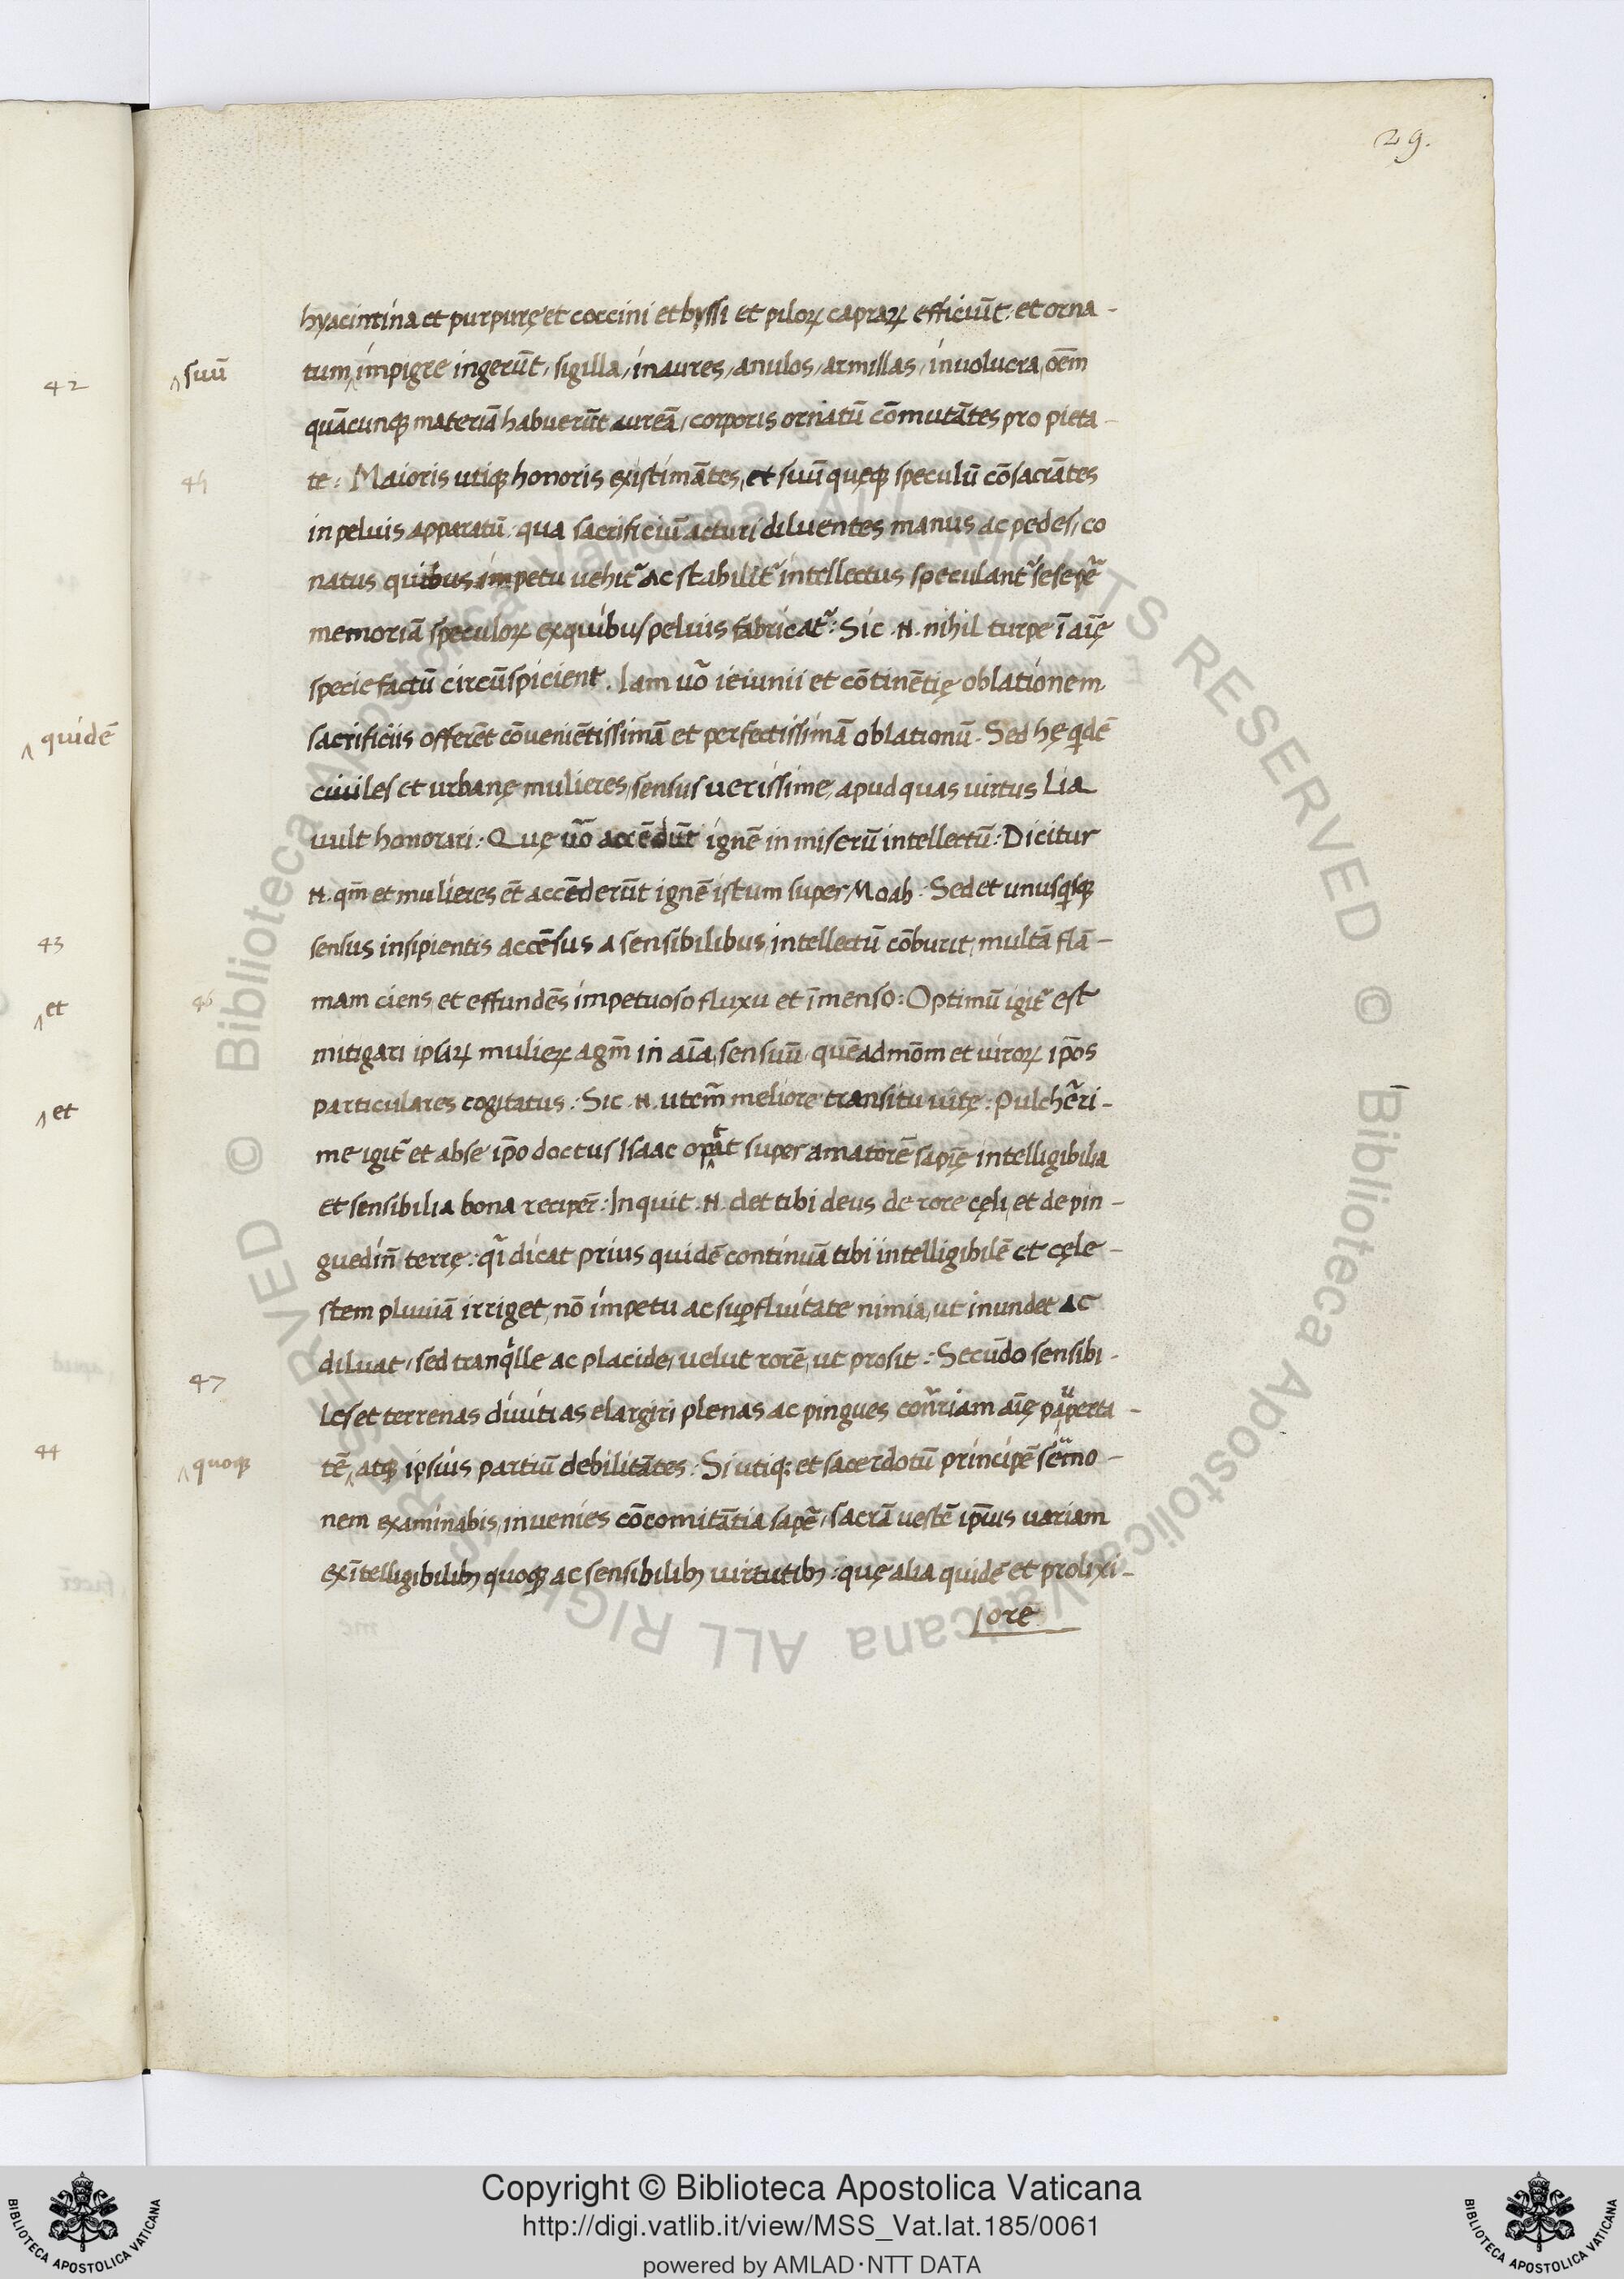 29.
hyacintina et purpurę et coccini et byssi et piloꝝ capraꝝ efficiūt: et orna-
suū
tum impigre ingerūt, sigilla, inaures, anulos, armillas, inuolucra, oēm
quācunqꝫ materiā habuerūt aureā, corporis ornatū cōmutātes pro pieta-
te: Maioris utiqꝫ honoris existimātes, et suū quęqꝫ speculū cōsacrātes
in peluis apparatū: qua sacrificiū acturi diluentes manus ac pedes, co
natus quibus impetu uehit᷑ ac stabilit᷑ intellectus speculant᷑ sese pē
memoriā speculoꝝ ex quibus peluis fabricat᷑: Sic .N. nihil turpe ī aīę
specie factū circūspicient. Iam uō ieiunii et cōtinētię oblationem
sacrificiis offerēt cōueniētissimā et perfectissimā oblationū. Sed hę qdē
ciuiles et urbanę mulieres, sensus uerissime, apud quas uirtus Lia
uult honorari: Quę uō accēdūt ignē in miserū intellectū: Dicitur
.N. qm̄ et mulieres ēt accēderūt ignē istum super Moab: Sed et unusqsqꝫ
sensus insipientis accēsus a sensibilibus, intellectū cōburit, multā flā-
46
mam ciens, et effundēs impetuoso fluxu et īmenso: Optimū igit᷑ est
mitigari ipsaꝝ mulieꝝ agm̄ in aīa, sensuū, quēadmōm et uiroꝝ ipōs
particulares cogitatus: Sic .N. utem̄ meliore transitu uitę: Pulchēri-
me igit᷑ et abse ipō doctus Isaac optat super amatorē sapīę intelligibilia
et sensibilia bona reciper̄: Inquit .N. det tibi deus de rore cęli, et de pin-
guedin̄ terrę: qī dicat prius quidē continuā tibi intelligibilē et cęle-
stem pluuiā irriget, nō impetu ac supfluitate nimia, ut inundet ac
diluat, sed tranqlle ac placide, uelut rorē, ut prosit: Secūdo sensibi-
47
les et terrenas diuitias elargiri plenas ac pingues con̄riam aīę pauperta-
quoqꝫ
tē, atqꝫ ipsius partiū debilitātes: Si utiqꝫ et sacerdotū principē sermo-
nem examinabis, inuenies cōcomitātia sapē, sacrā uestē ipīus uariam
ex ītelligibilibꝫ quoqꝫ ac sensibilibꝫ uirtutibꝫ: quę alia quidē et prolixi-
ore
42
quidē
43
et
et
44
Copyright © Biblioteca Apostolica Vaticana
http://digi.vatlib.it/view/MSS_Vat.lat.185/0061
powered by AMLAD·NTT DATA